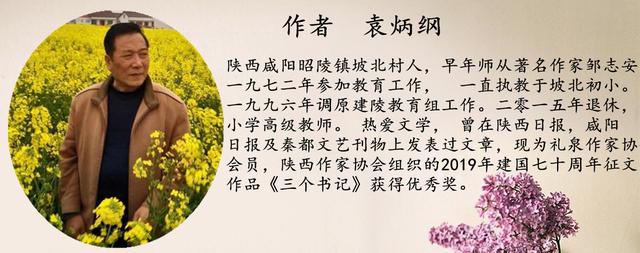 作者 袁炳纲
陕西咸阳昭陵镇坡北村人，早年师从著名作家邹志安
一九七二年参加教育工作， 一直执教于坡北初小。
一九九六年调原建陵教育组工作。二零一五年退休，
小学高级教师。 热爱文学， 曾在陕西日报，咸阳
日报及秦都文艺刊物上发表过文章，现为礼泉作家协
会员，陕西作家协会组织的2019年建国七十周年征文
作品《三个书记》获得优秀奖。